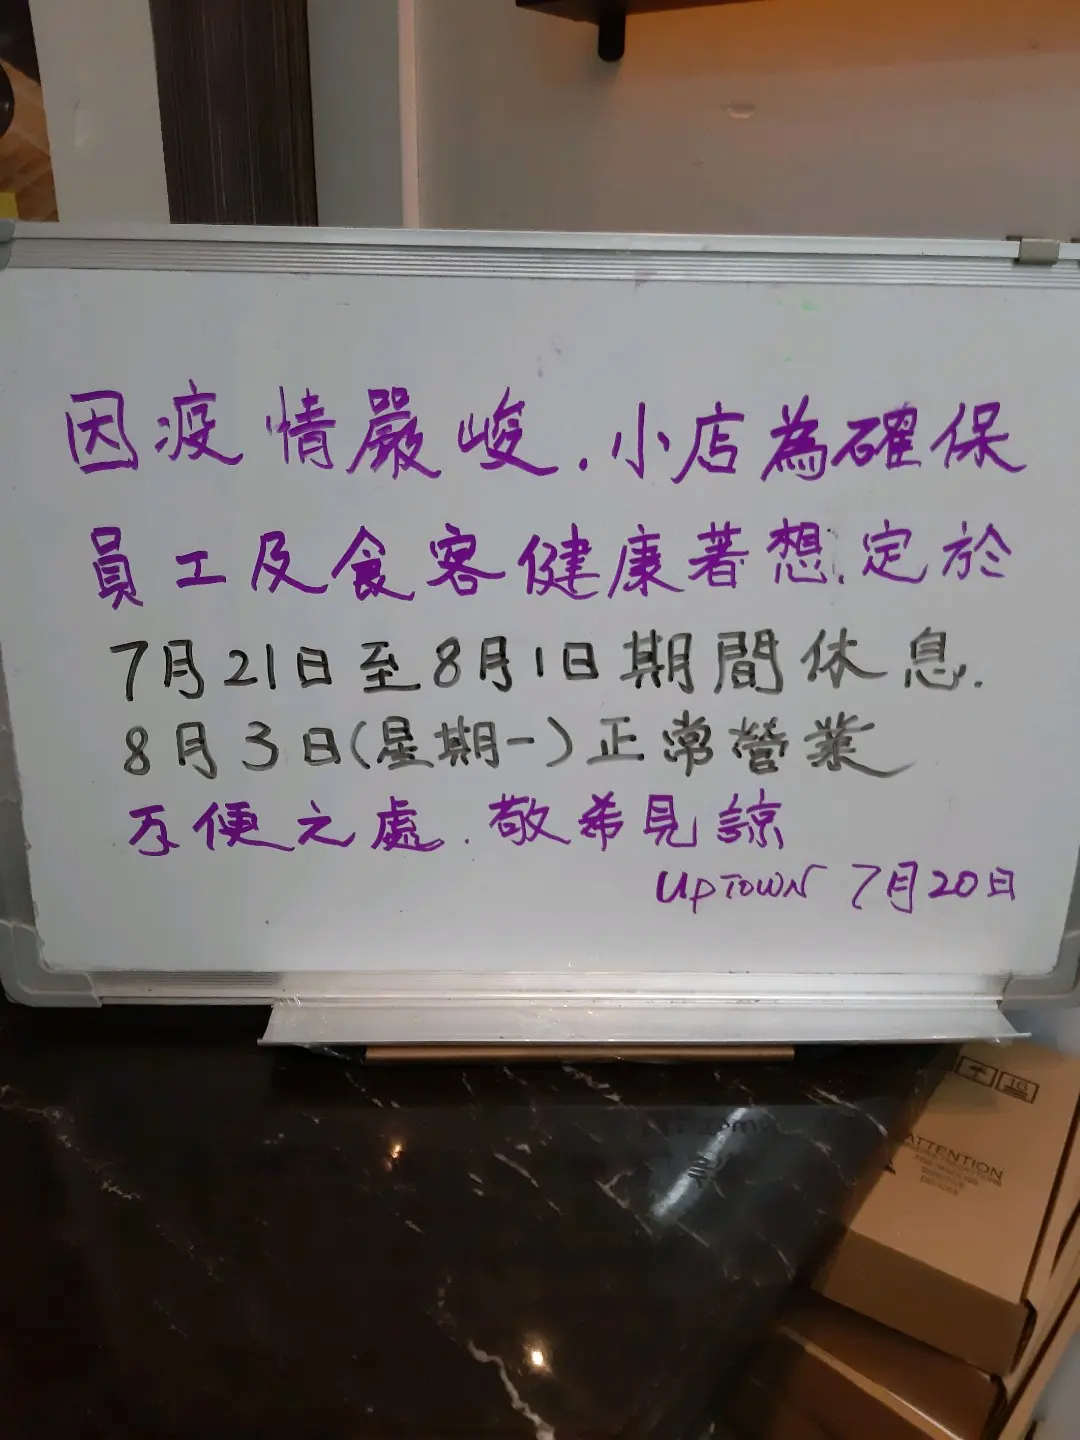 因疫情嚴峻.小店為確保
員工及食客健康著想.定於
7月21日至8月1日期間休息.
8月3日(星期一)正常營業
不便之處.敬希見諒
UPTOWN 7月20日
ATTENTION